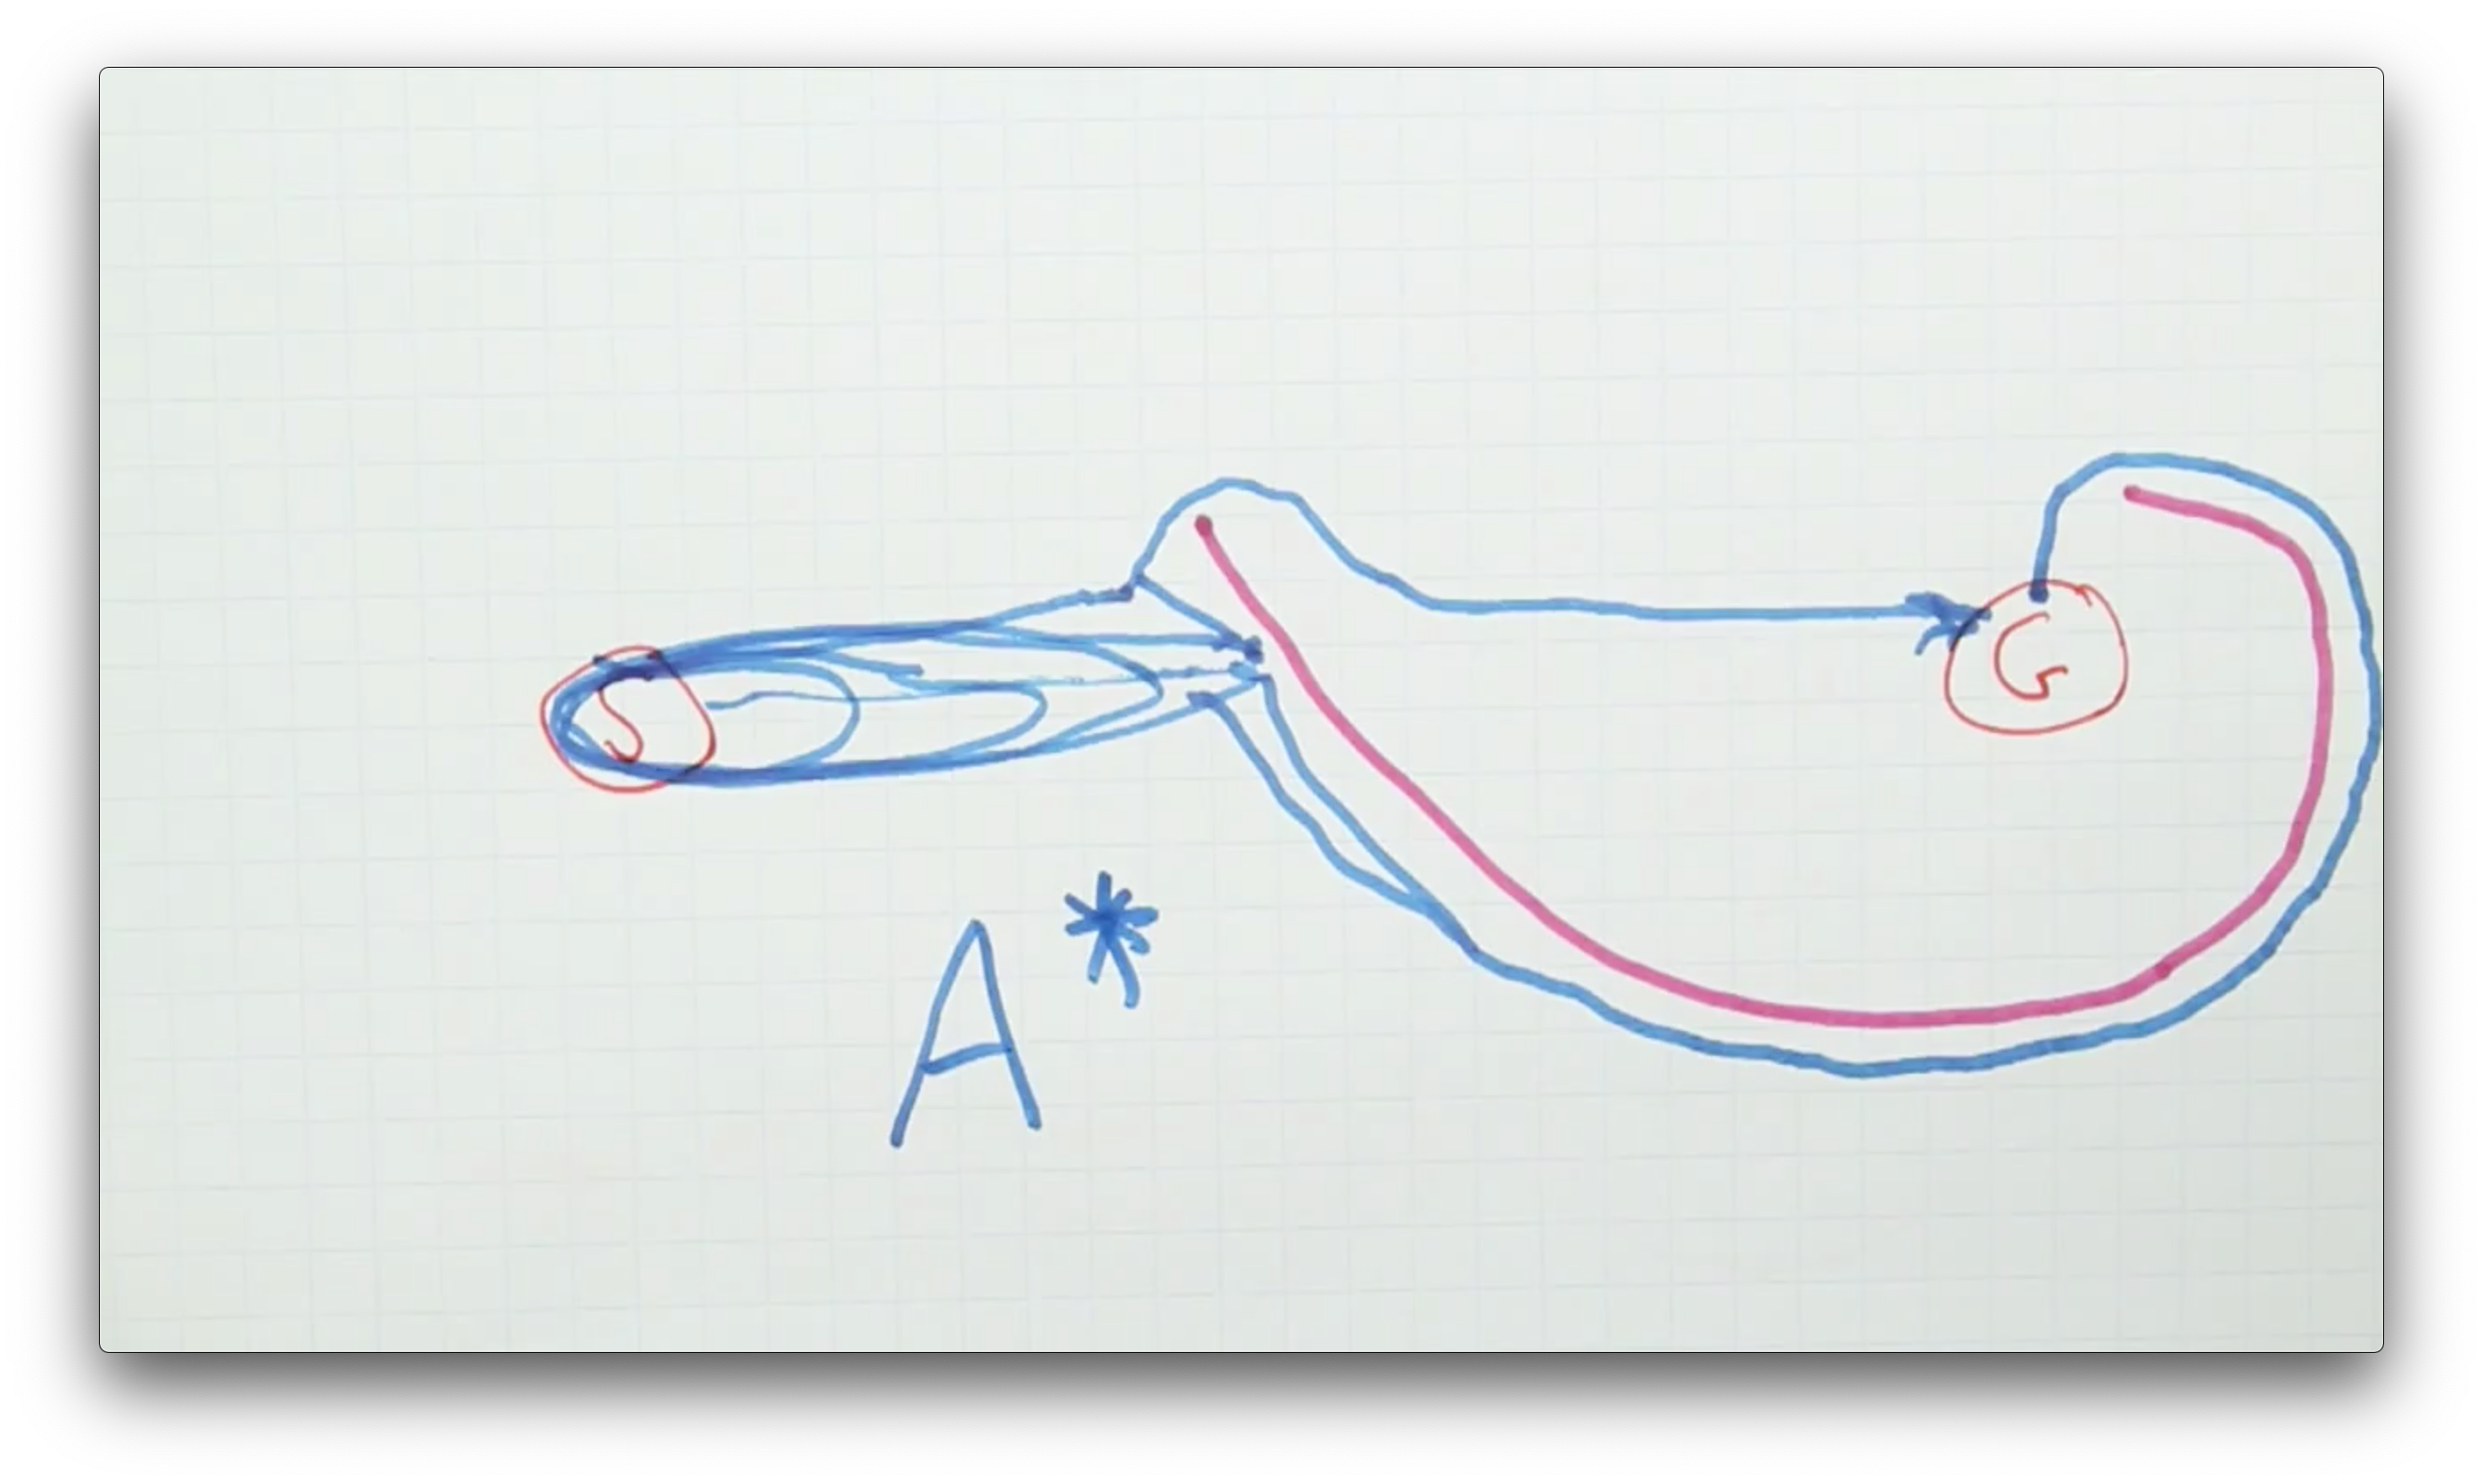 S
G
A*